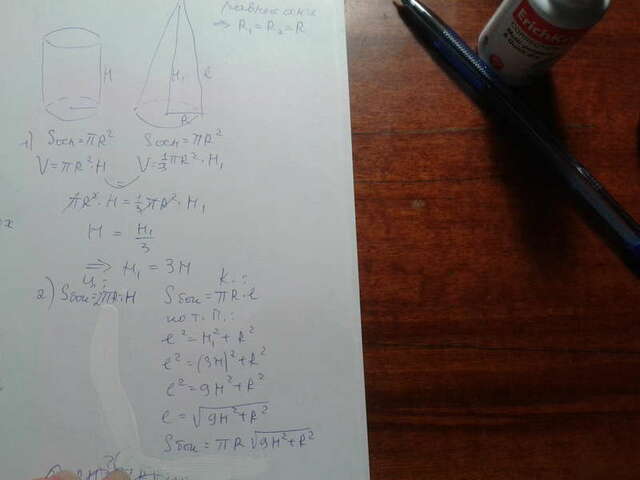 равновелики
⇒ R₁ = R₂ = R
H
H₁
l
R
1) Sосн = πR²
Sосн = πR²
V = πR²·H
V = ⅓πR²·H₁
πR²·H = ⅓πR²·H₁
H = H₁/3
⇒ H₁ = 3H
Ц.:
К.:
2) Sбок = 2πR·H
Sбок = πR·l
по т. П.:
l² = H₁² + R²
l² = (3H)² + R²
l² = 9H² + R²
l = √9H² + R²
Sбок = πR √9H² + R²
ErichKrause